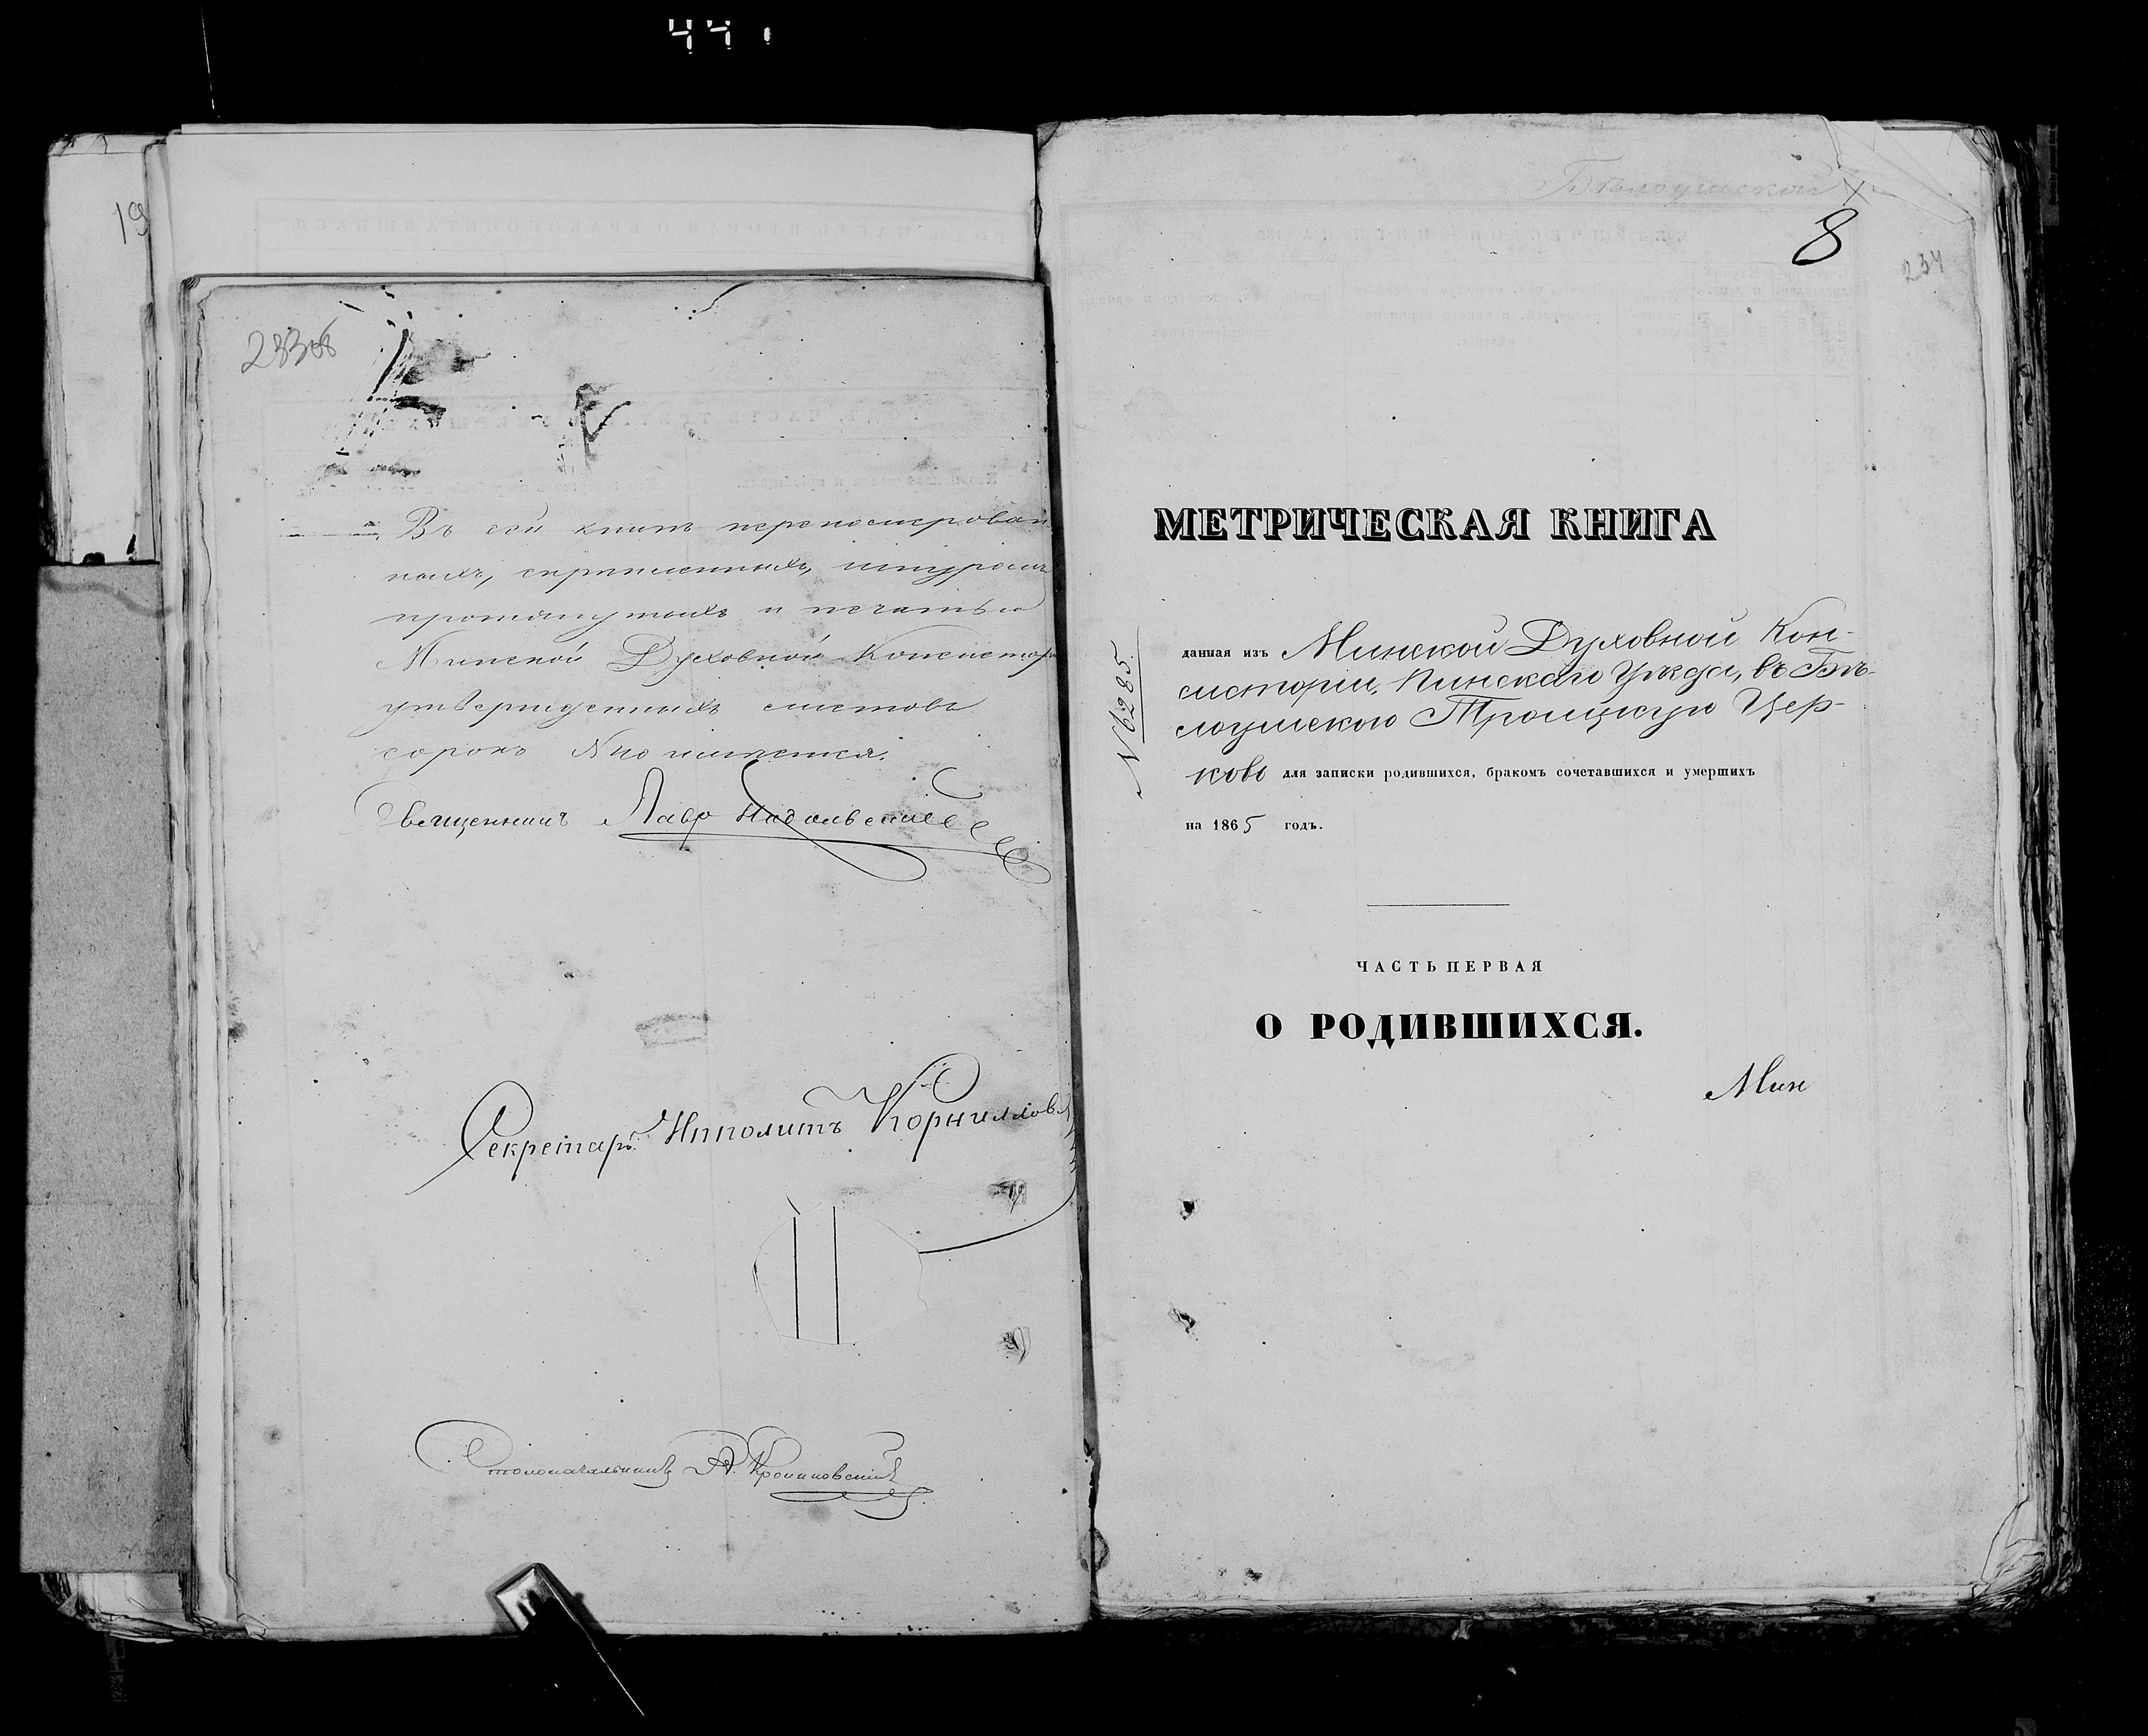 44
19
233об
Въ сей книгѣ перенумерован
ныхъ, скрѣпленныхъ, шнуромъ
протянутыхъ и печатью
Минской Духовной Консистор
утвержденныхъ листовъ
сорокъ № 40 имѣется.
Священникъ Лавр
Секретарь Ипполитъ Корниллов
Столоначальникъ А.
Бѣлоушской
8
234
МЕТРИЧЕСКАЯ КНИГА
№ 6285.
данная изъ Минской Духовной Кон-
систоріи, Пинскаго Уѣзда, въ Бѣ-
лоушскою Троицкую Цер-
ковь для записки родившихся, бракомъ сочетавшихся и умершихъ
на 1865 годъ.
ЧАСТЬ ПЕРВАЯ
О РОДИВШИХСЯ.
Мин